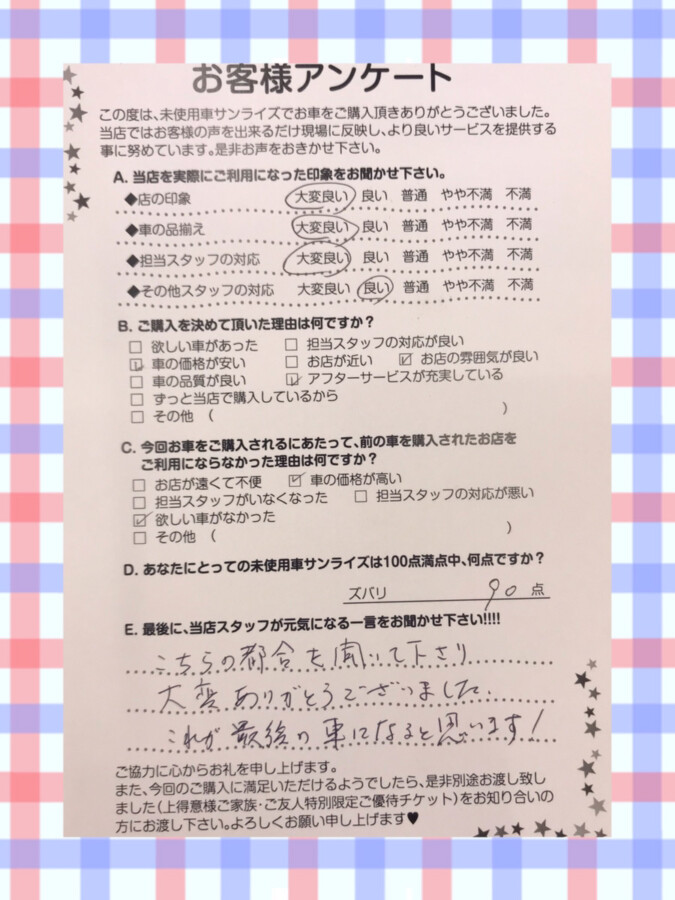 お客様アンケート
この度は、未使用車サンライズでお車をご購入頂きありがとうございました。
当店ではお客様の声を出来るだけ現場に反映し、より良いサービスを提供する
事に努めています。是非お声をおきかせ下さい。
A. 当店を実際にご利用になった印象をお聞かせ下さい。
◆店の印象 大変良い 良い 普通 やや不満 不満
◆車の品揃え 大変良い 良い 普通 やや不満 不満
◆担当スタッフの対応 大変良い 良い 普通 やや不満 不満
◆その他スタッフの対応 大変良い 良い 普通 やや不満 不満
B. ご購入を決めて頂いた理由は何ですか?
□ 欲しい車があった □ 担当スタッフの対応が良い
☑ 車の価格が安い □ お店が近い ☑ お店の雰囲気が良い
□ 車の品質が良い ☑ アフターサービスが充実している
□ ずっと当店で購入しているから
□ その他 ( )
C. 今回お車をご購入されるにあたって、前の車を購入されたお店を
ご利用にならなかった理由は何ですか?
□ お店が遠くて不便 ☑ 車の価格が高い
□ 担当スタッフがいなくなった □ 担当スタッフの対応が悪い
☑ 欲しい車がなかった
□ その他 ( )
D. あなたにとっての未使用車サンライズは100点満点中、何点ですか?
ズバリ 90 点
E. 最後に、当店スタッフが元気になる一言をお聞かせ下さい!!!!
こちらの都合を聞いて下さり
大変ありがとうございました。
これが最後の車になると思います!
ご協力に心からお礼を申し上げます。
また、今回のご購入に満足いただけるようでしたら、是非別途お渡し致し
ました(上得意様ご家族・ご友人特別限定ご優待チケット)をお知り合いの
方にお渡し下さい。よろしくお願い申し上げます♥